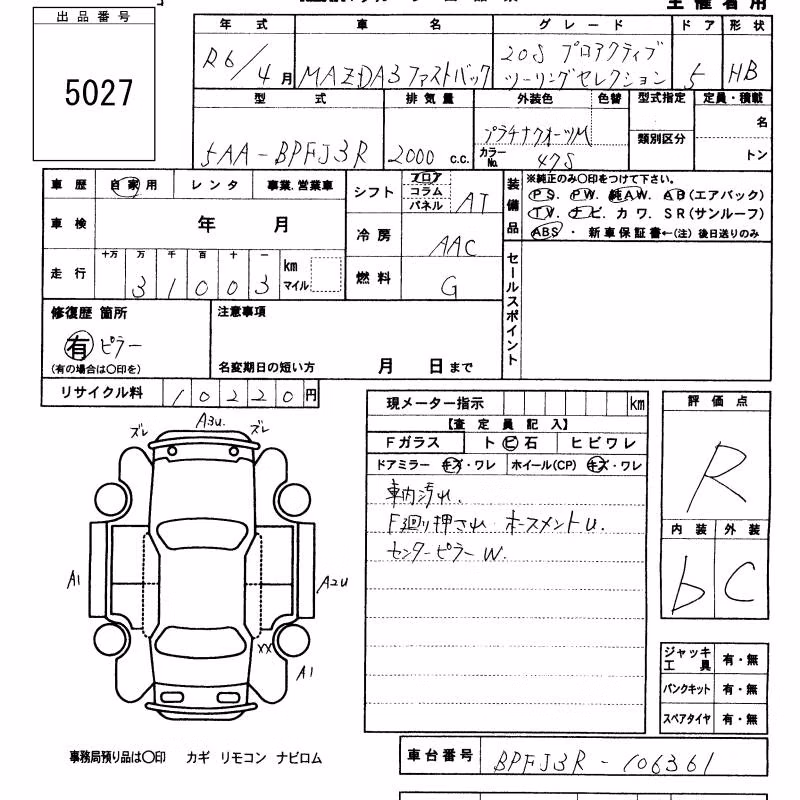 主催者用
出品番号
5027
年式 車名 グレード ドア 形状
R6/4月 MAZDA3 ファストバック 20S プロアクティブ ツーリングセレクション 5 HB
型式 排気量 外装色 色替 型式指定 定員・積載
5AA-BPFJ3R 2000 c.c. プラチナクォーツM 名
類別区分
カラーNo. 47S トン
車歴 自家用 レンタ 事業.営業車
車検 年 月
走行 十万 万 千 百 十 一
31003 km マイル
シフト フロア コラム パネル AT
冷房 AAC
燃料 G
装備品
※純正のみ○印をつけて下さい。
PS. PW. 純AW. AB(エアバック)
TV. ナビ. カワ. SR(サンルーフ)
ABS ・ 新車保証書←(注)後日送りのみ
セールスポイント
修復歴 箇所
有 ピラー
(有の場合は○印を)
注意事項
名変期日の短い方 月 日まで
リサイクル料 10220円
現メーター指示 km
【査定員記入】
Fガラス ト ビ 石 ヒビワレ
ドアミラー キズ・ワレ ホイール(CP) キズ・ワレ
車内汚れ.
F廻り押され ホースメントU.
センターピラーW.
評価点
R
内装 外装
b C
ズレ A3U. ズレ
A1 A2U
XX
A1
ジャッキ工具 有・無
パンクキット 有・無
スペアタイヤ 有・無
事務局預り品は○印 カギ リモコン ナビロム
車台番号 BPFJ3R-106361